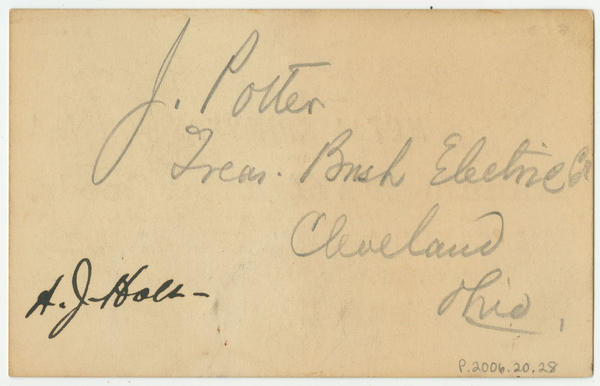 J. Potter
Treas. Brush Electric Co
Cleveland
Ohio,
A. J. Holt-
P.2006.20.28